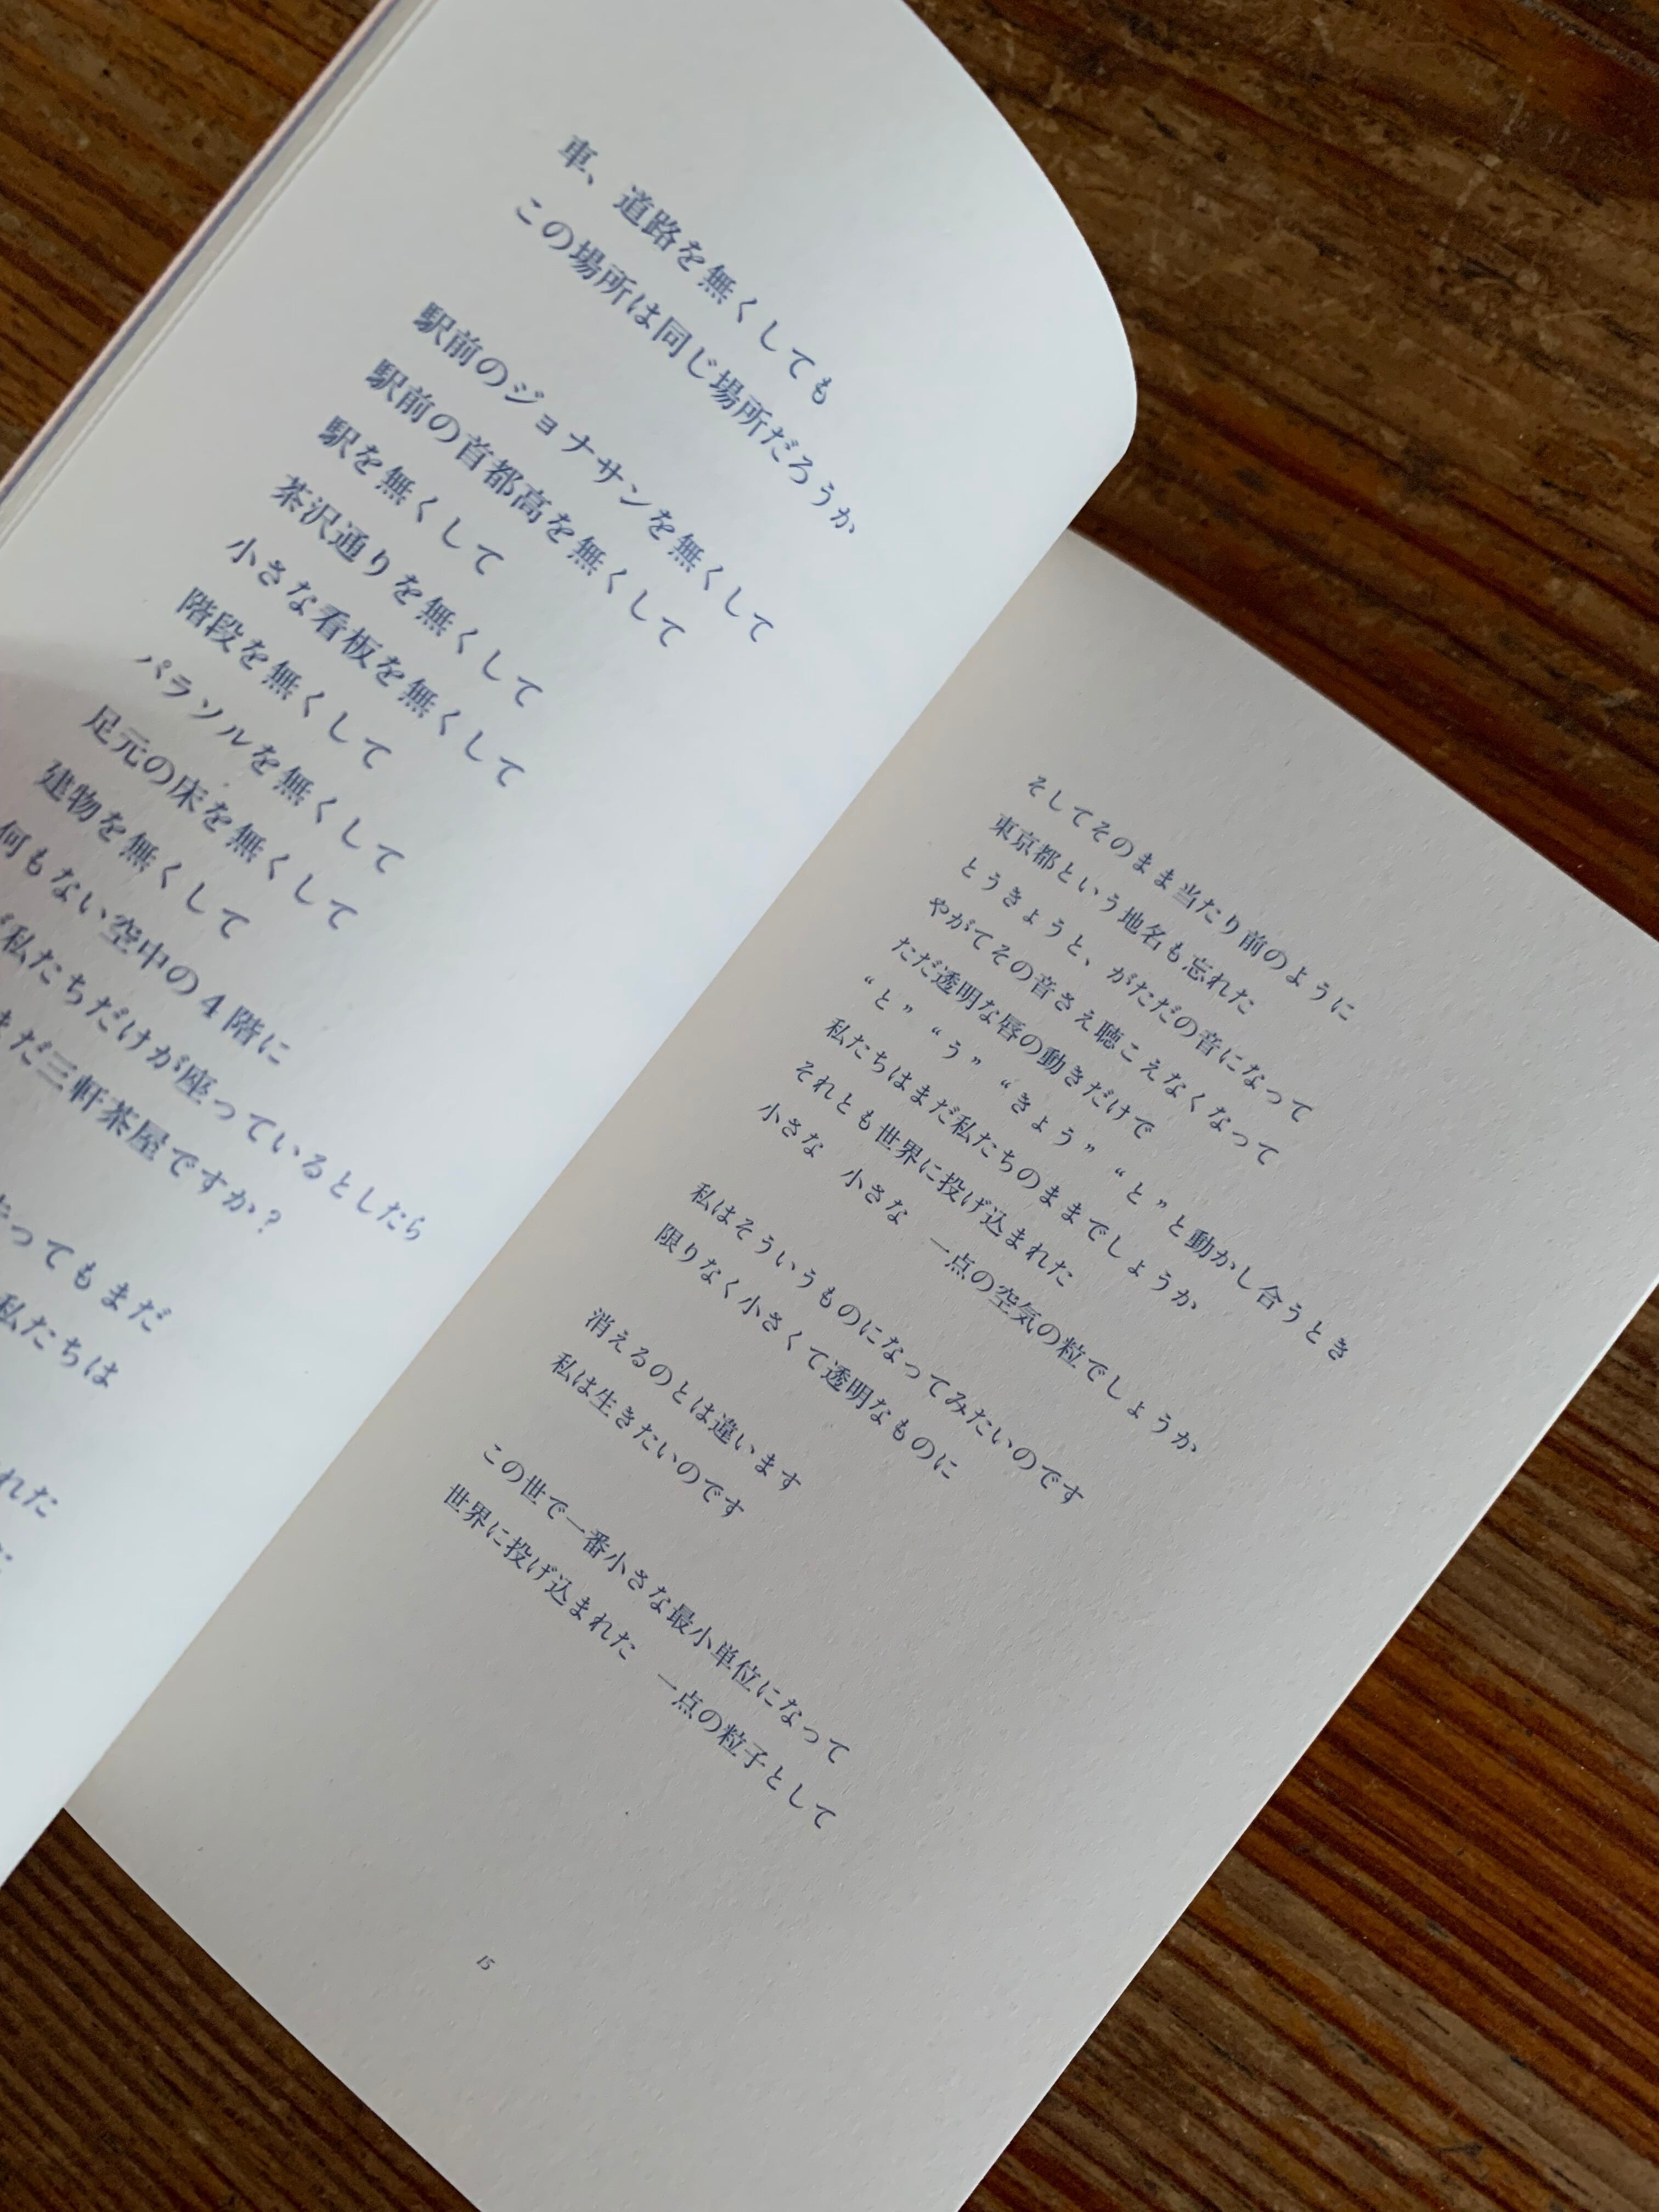 車、道路を無くしても
この場所は同じ場所だろうか
駅前のジョナサンを無くして
駅前の首都高を無くして
駅を無くして
茶沢通りを無くして
小さな看板を無くして
階段を無くして
パラソルを無くして
足元の床を無くして
建物を無くして
何もない空中の4階に
私たちだけが座っているとしたら
まだ三軒茶屋ですか？
ってもまだ
私たちは
れた
そしてそのまま当たり前のように
東京都という地名も忘れた
とうきょうと、がただの音になって
やがてその音さえ聴こえなくなって
ただ透明な唇の動きだけで
“と” “う” “きょう” “と”と動かし合うとき
私たちはまだ私たちのままでしょうか
それとも世界に投げ込まれた
小さな　小さな　一点の空気の粒でしょうか
私はそういうものになってみたいのです
限りなく小さくて透明なものに
消えるのとは違います
私は生きたいのです
この世で一番小さな最小単位になって
世界に投げ込まれた　一点の粒子として
15